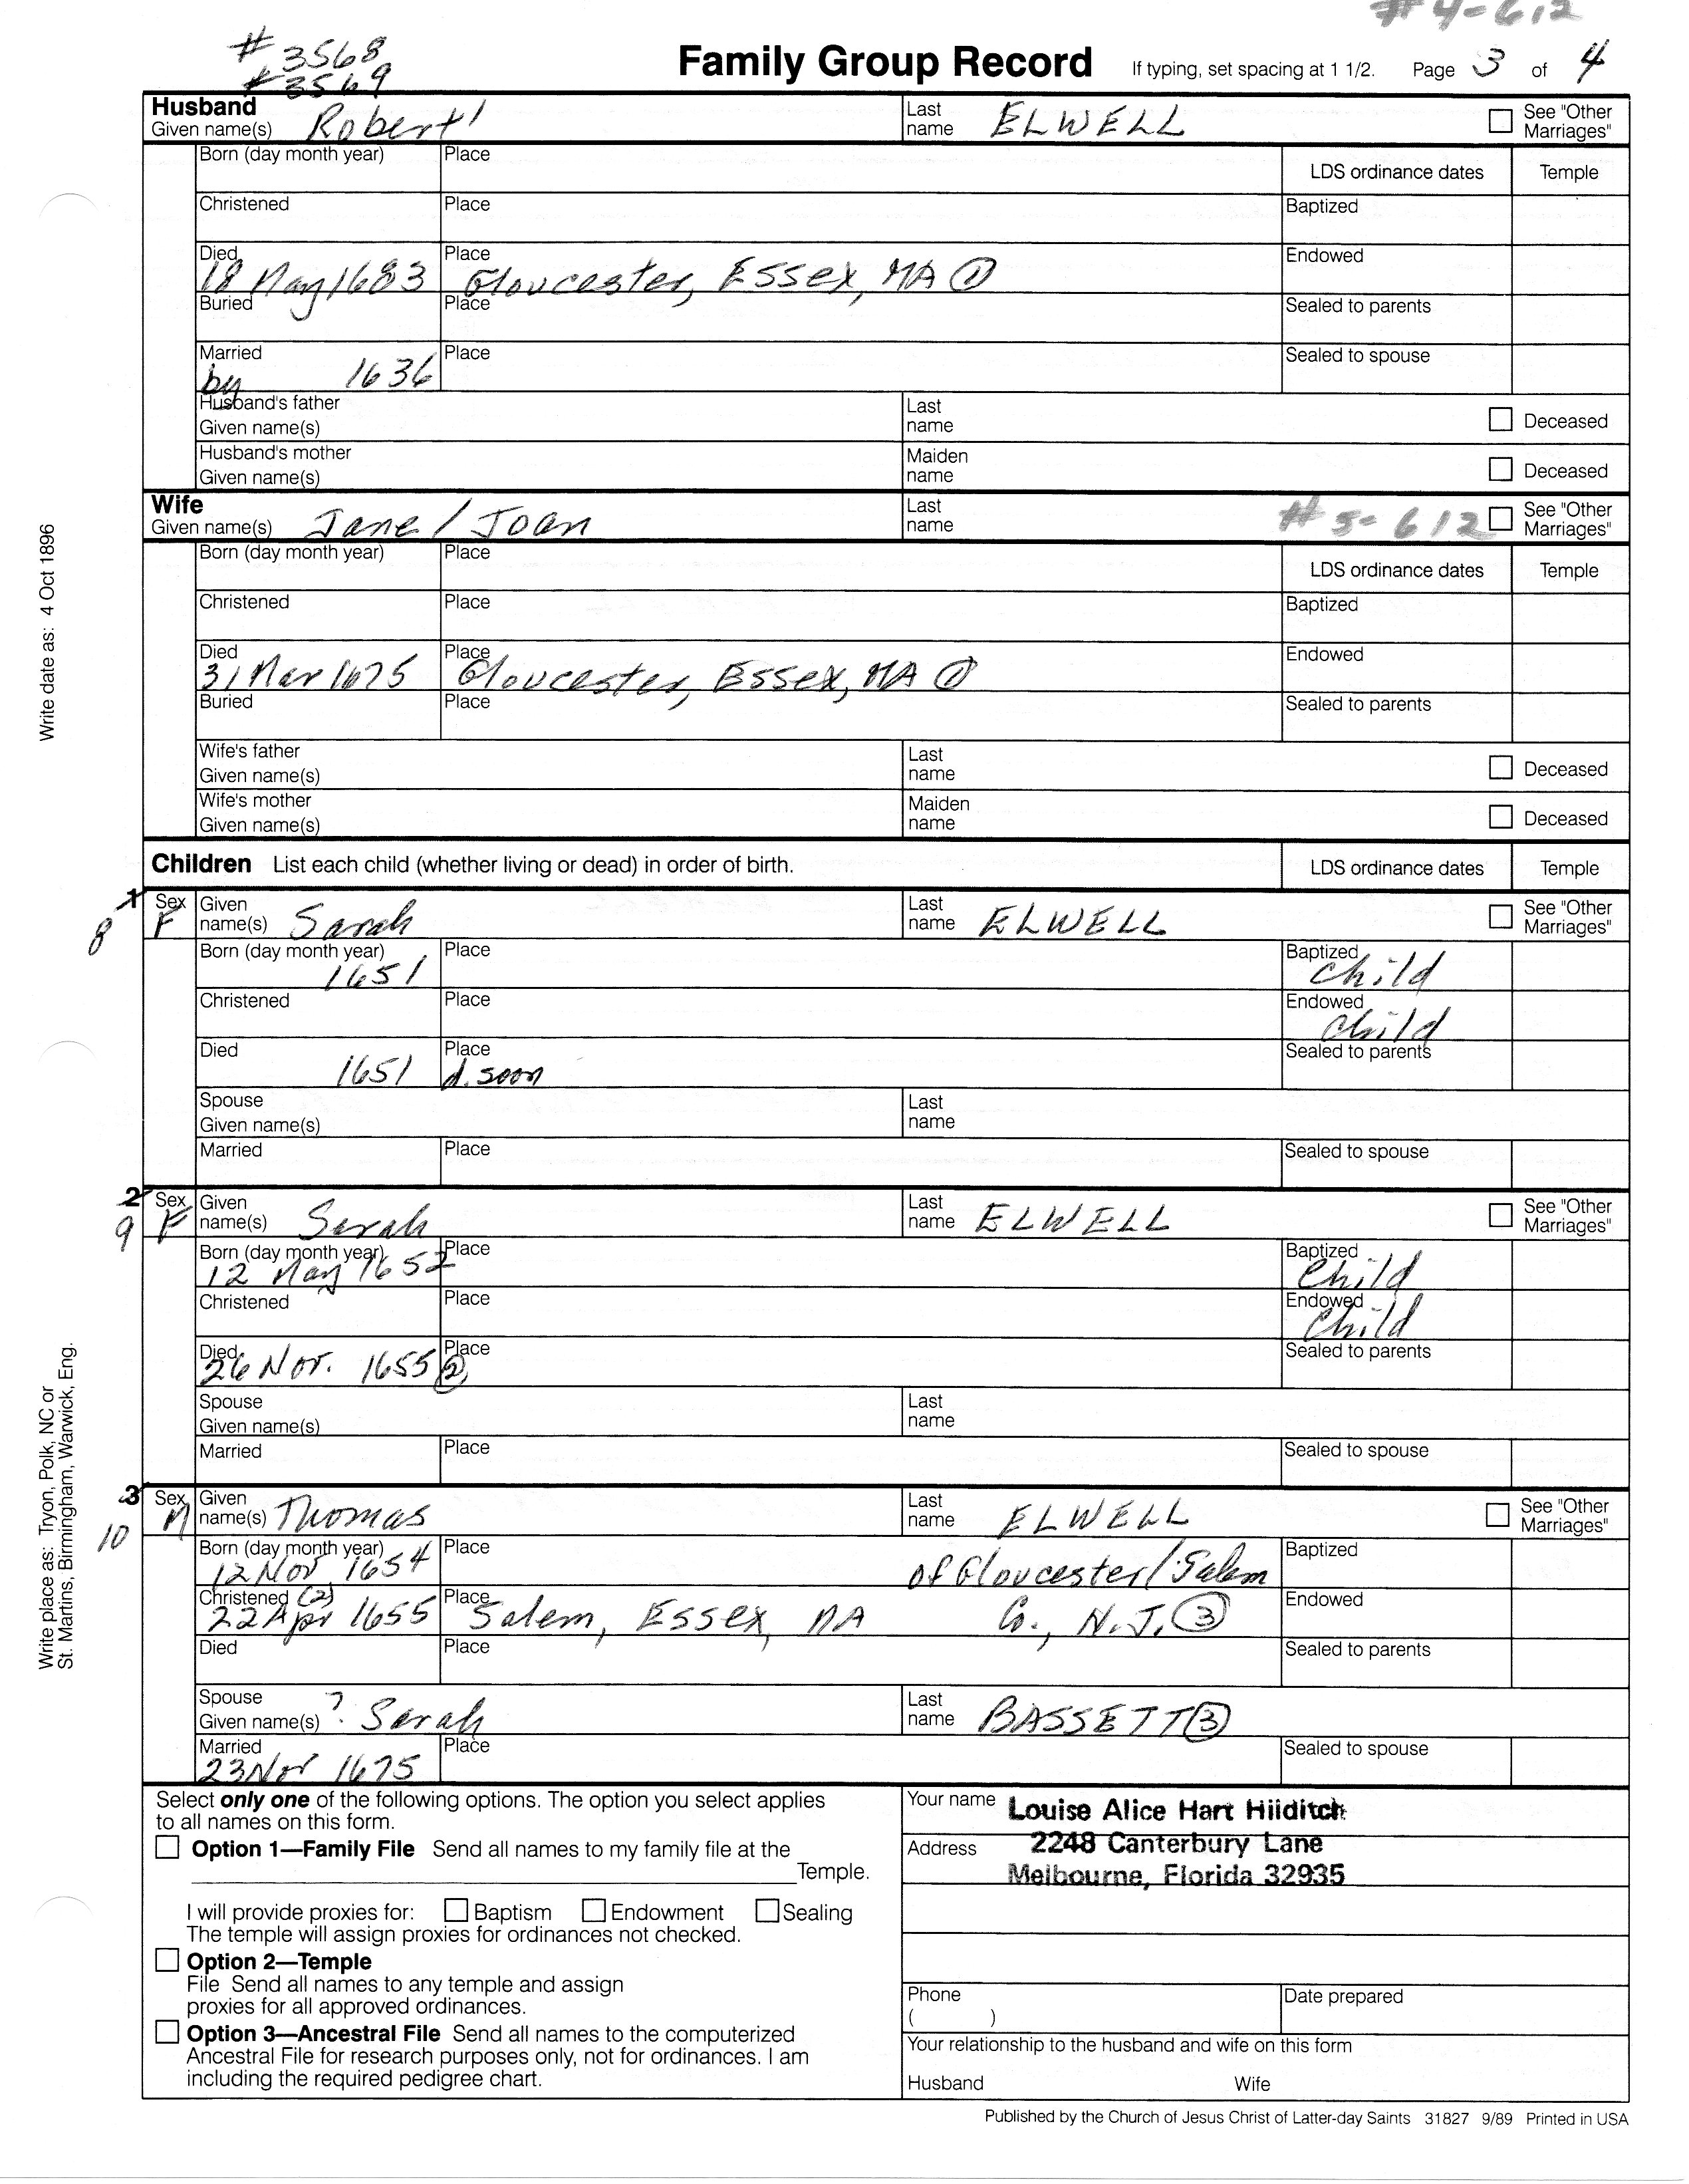 #4-612
#3568
#3569
Family Group Record If typing, set spacing at 1 1/2. Page 3 of 4
Husband
Given name(s) Robert¹ Last name ELWELL See "Other Marriages"
Born (day month year) Place LDS ordinance dates Temple
Christened Place Baptized
Died 18 May 1683 Place Gloucester, Essex, MA ① Endowed
Buried Place Sealed to parents
Married by 1636 Place Sealed to spouse
Husband's father Given name(s) Last name Deceased
Husband's mother Given name(s) Maiden name Deceased
Wife
Given name(s) Jane / Joan Last name #5-612 See "Other Marriages"
Born (day month year) Place LDS ordinance dates Temple
Christened Place Baptized
Died 31 Mar 1675 Place Gloucester, Essex, MA ① Endowed
Buried Place Sealed to parents
Wife's father Given name(s) Last name Deceased
Wife's mother Given name(s) Maiden name Deceased
Children List each child (whether living or dead) in order of birth. LDS ordinance dates Temple
1 8 Sex F Given name(s) Sarah Last name ELWELL See "Other Marriages"
Born (day month year) 1651 Place Baptized child
Christened Place Endowed child
Died 1651 Place d. soon Sealed to parents
Spouse Given name(s) Last name
Married Place Sealed to spouse
2 9 Sex F Given name(s) Sarah Last name ELWELL See "Other Marriages"
Born (day month year) 12 May 1652 Place Baptized Child
Christened Place Endowed Child
Died 26 Nov. 1655 Place ② Sealed to parents
Spouse Given name(s) Last name
Married Place Sealed to spouse
3 10 Sex M Given name(s) Thomas Last name ELWELL See "Other Marriages"
Born (day month year) 12 Nov 1654 Place of Gloucester/Salem Baptized
Christened (2) 22 Apr 1655 Place Salem, Essex, MA Co., N.J. ③ Endowed
Died Place Sealed to parents
Spouse Given name(s) ? Sarah Last name BASSETT ③
Married 23 Nov 1675 Place Sealed to spouse
Select only one of the following options. The option you select applies
to all names on this form.
Option 1—Family File Send all names to my family file at the
Temple.
I will provide proxies for: Baptism Endowment Sealing
The temple will assign proxies for ordinances not checked.
Option 2—Temple
File Send all names to any temple and assign
proxies for all approved ordinances.
Option 3—Ancestral File Send all names to the computerized
Ancestral File for research purposes only, not for ordinances. I am
including the required pedigree chart.
Your name Louise Alice Hart Hilditch
Address 2248 Canterbury Lane
Melbourne, Florida 32935
Phone ( ) Date prepared
Your relationship to the husband and wife on this form
Husband Wife
Published by the Church of Jesus Christ of Latter-day Saints 31827 9/89 Printed in USA
Write date as: 4 Oct 1896
Write place as: Tryon, Polk, NC or
St. Martins, Birmingham, Warwick, Eng.